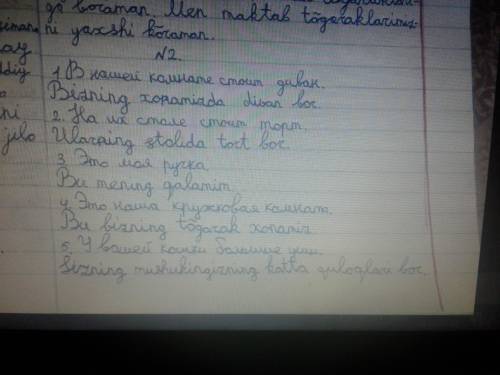 ga boraman. Men maktab tõgaraklarimiz-
ni yaxshi kõraman.
N2.
1. В нашей комнате стоит диван.
Bizning xonamizda divan bor.
2. На их столе стоит торт.
Ularning stolida tort bor.
3. Это моя ручка.
Bu mening qalamim.
4. Это наша кружковая комнат.
Bu bizning tõgarak xonamiz.
5. У вашей кошки большие уши.
Sizning mushukingizning katta quloqlari bor.
ay
ddiy
ni
jilo